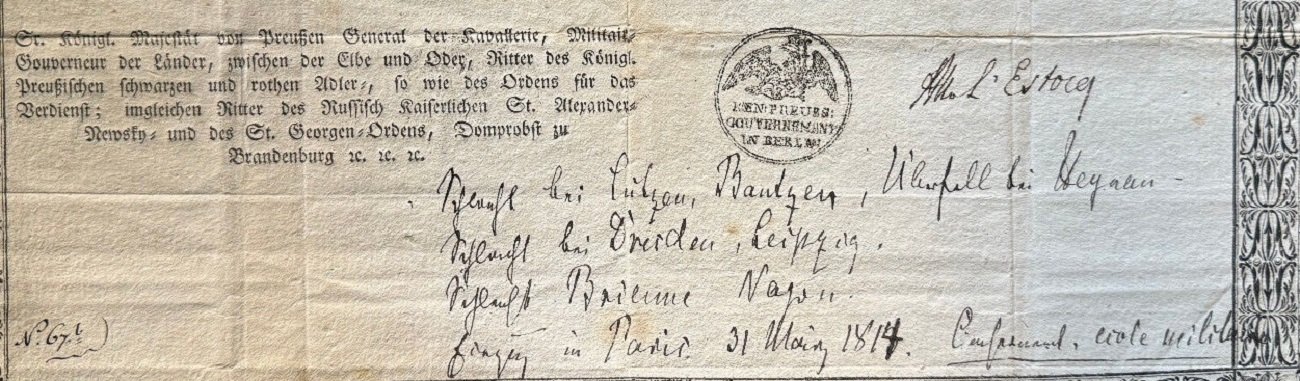 Sr. Königl. Majestät von Preußen General der Kavallerie, Militair-
Gouverneur der Länder, zwischen der Elbe und Oder, Ritter des Königl.
Preußischen schwarzen und rothen Adler-, so wie des Ordens für das
Verdienst; imgleichen Ritter des Russisch Kaiserlichen St. Alexander-
Newsky- und des St. Georgen-Ordens, Domprobst zu
Brandenburg ꝛc. ꝛc. ꝛc.
PREUSS:
GOUVERNEMENT
IN BERLIN
L'Estocq
Schlacht bei Lützen, Bautzen, Überfall bei Heynau -
Schlacht bei Dresden, Leipzig.
Schlacht Brienne
Einzug in Paris. 31 März 1814. ecole militaire
No. 67